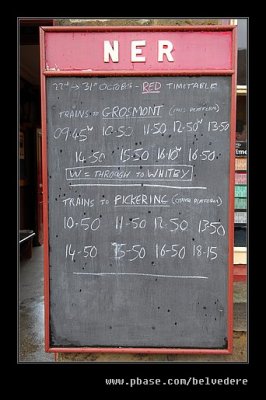 NER
22ND → 31ST OCTOBER - RED TIMETABLE
TRAINS TO GROSMONT (THIS PLATFORM)
09·45W 10-50 11·50 12-50W 13·50
14-50 15·50 16·10W 16-50
W = THROUGH TO WHITBY
TRAINS TO PICKERING (OTHER PLATFORM)
10-50 11-50 12-50 13·50
14-50 15-50 16-50 18-15
www.pbase.com/belvedere